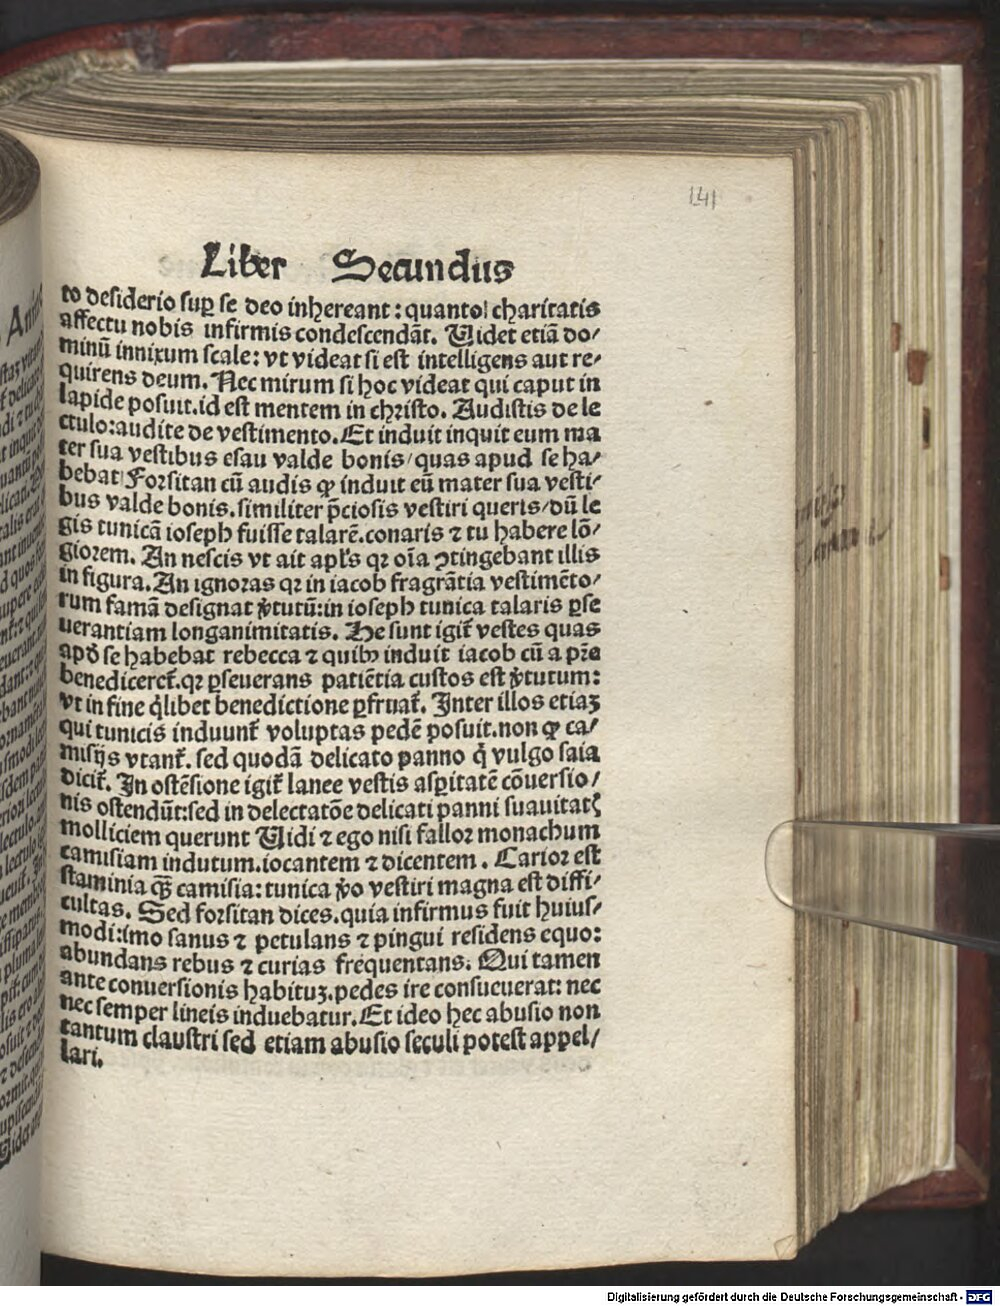 141
Liber Secundus
to desiderio suꝑ se deo inhereant: quanto charitatis
affectu nobis infirmis condescendāt. Uidet etiā do/
minū innixum scale: vt videat si est intelligens aut re/
quirens deum. Nec mirum si hoc videat qui caput in
lapide posuit.id est mentem in christo. Audistis de le
ctulo:audite de vestimento.Et induit inquit eum ma
ter sua vestibus esau valde bonis/quas apud se ha/
bebat Forsitan cū audis ꝙ induit eū mater sua vesti/
bus valde bonis.similiter p̄ciosis vestiri queris/dū le
gis tunicā ioseph fuisse talarē.conaris ⁊ tu habere lō/
giorem. An nescis vt ait apl's qꝛ oīa ꝯtingebant illis
in figura.An ignoras qꝛ in iacob fragrātia vestimēto/
rum famā designat v̓tutū:in ioseph tunica talaris ꝑse
uerantiam longanimitatis. He sunt igit̄ vestes quas
apđ se habebat rebecca ⁊ quibꝰ induit iacob cū a pr̄e
benediceret̄.qꝛ ꝑseuerans patiētia custos est v̓tutum:
vt in fine q̄libet benedictione ꝑfruat̄. Inter illos etiaꝫ
qui tunicis induunt̄ voluptas pedē posuit.non ꝙ ca/
misijs vtant̄. sed quodā delicato panno q̄ vulgo saia
dicit̄. In ostēsione igit̄ lanee vestis asꝑitatē cōuersio/
nis ostendūt:sed in delectatōe delicati panni suauitatꝭ
molliciem querunt Uidi ⁊ ego nisi fallor monachum
camisiam indutum.iocantem ⁊ dicentem. Carior est
staminia qꝫ camisia: tunica v̓o vestiri magna est diffi/
cultas. Sed forsitan dices.quia infirmus fuit huius/
modi:imo sanus ⁊ petulans ⁊ pingui residens equo:
abundans rebus ⁊ curias frequentans. Qui tamen
ante conuersionis habituꝫ.pedes ire consueuerat: nec
nec semper lineis induebatur.Et ideo hec abusio non
tantum claustri sed etiam abusio seculi potest appel/
lari.
Digitalisierung gefördert durch die Deutsche Forschungsgemeinschaft - DFG